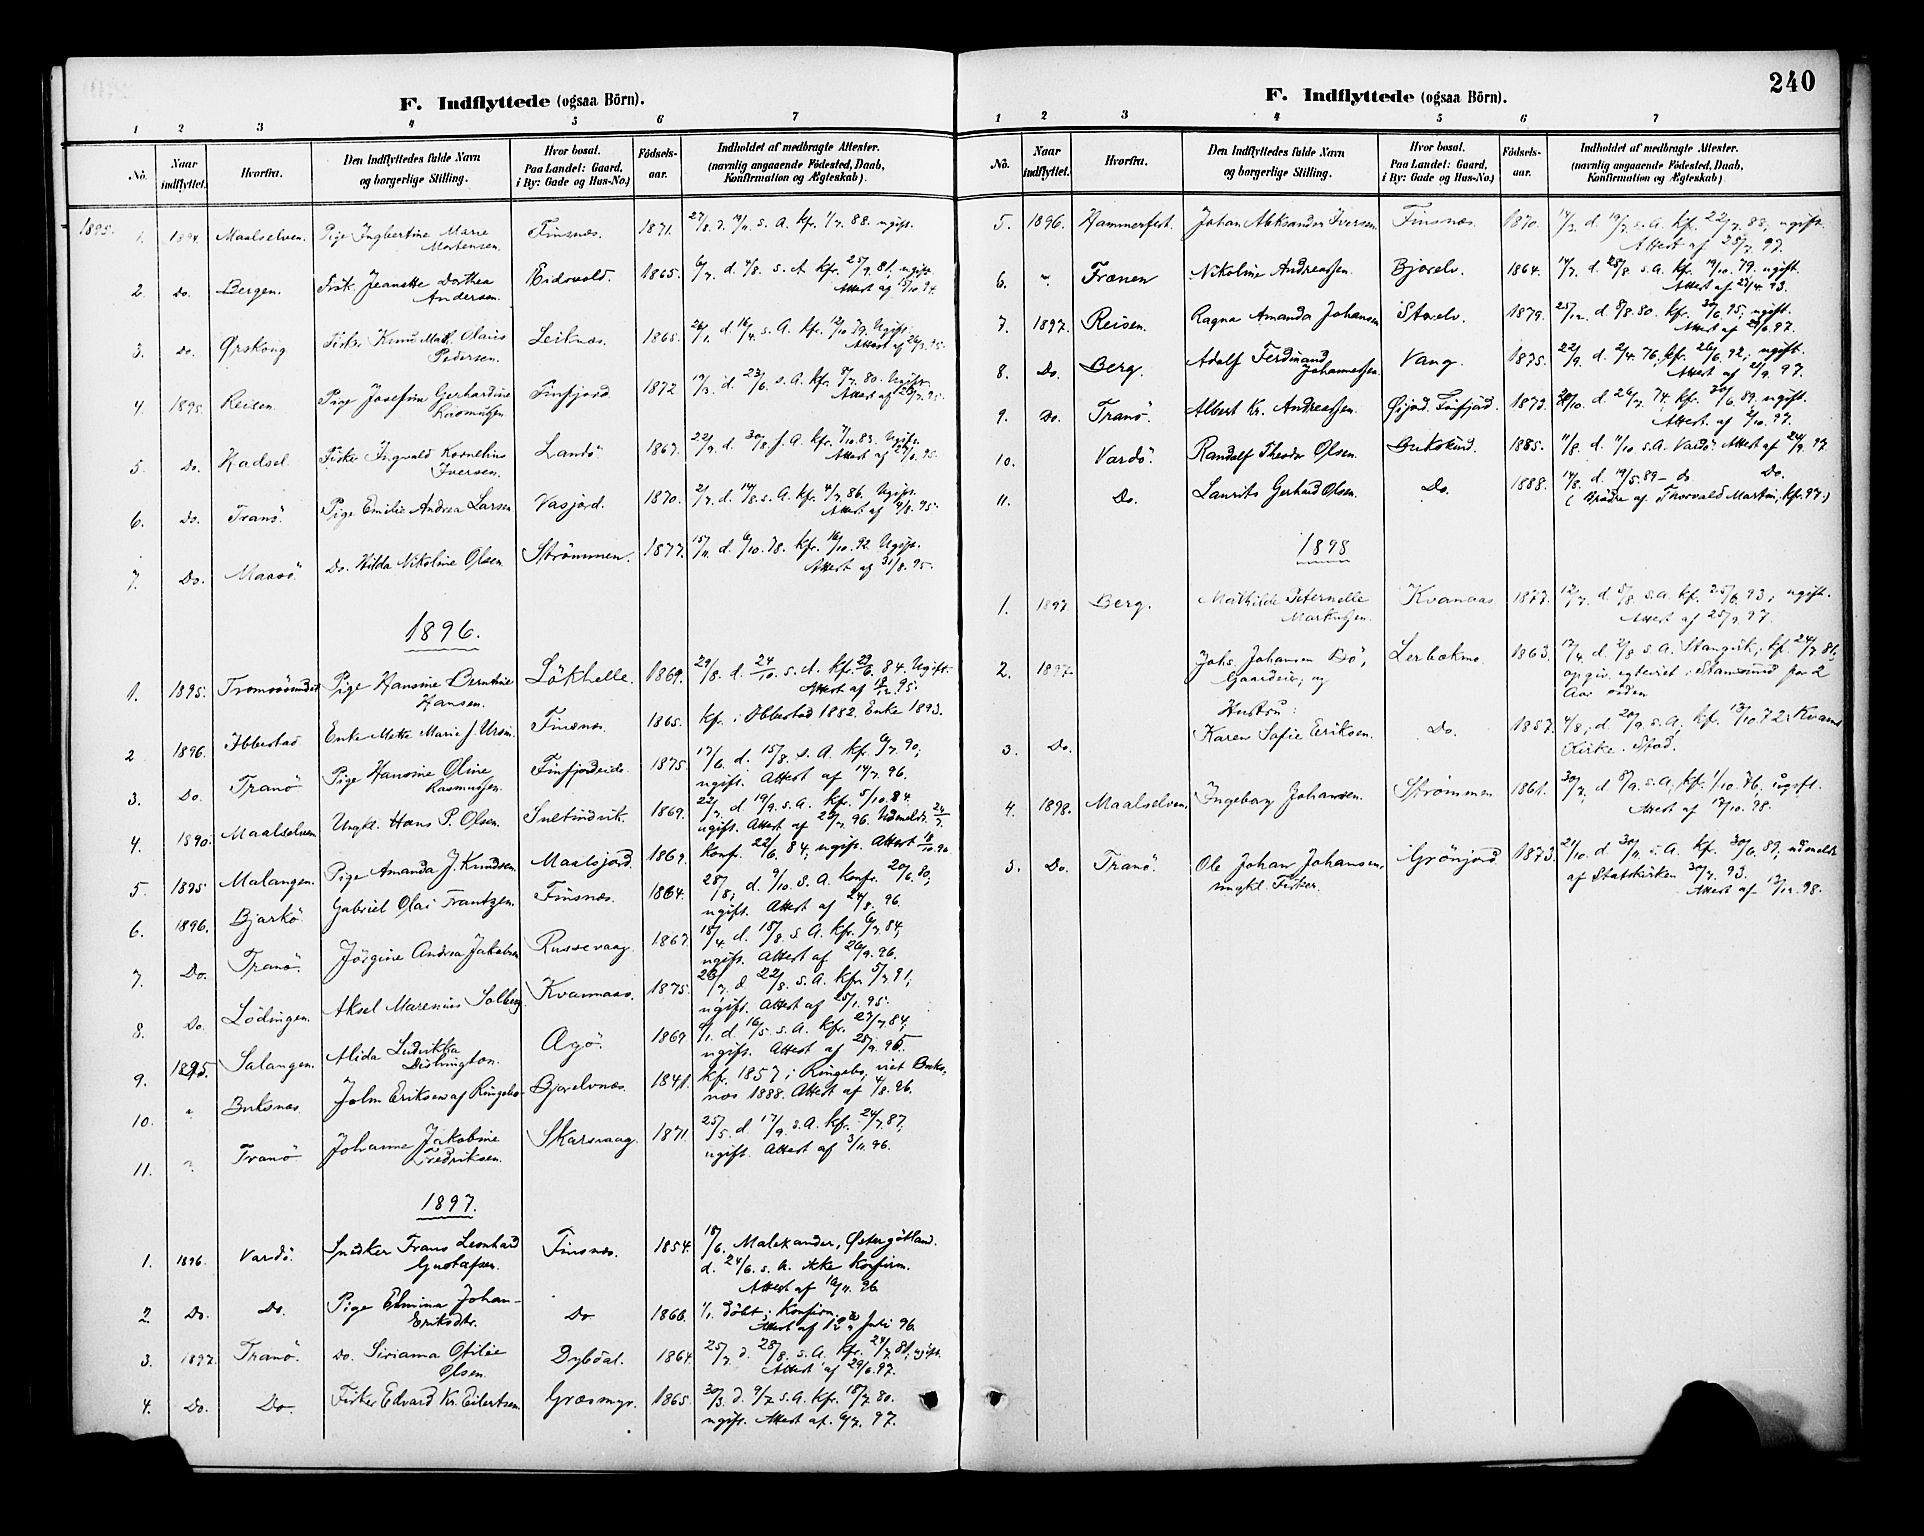 F. Indflyttede (ogsaa Börn).
1 2 3 4 5 6 7
No. Naar indflyttet. Hvorfra. Den Indflyttedes fulde Navn og borgerlige Stilling. Hvor bosat. Paa Landet: Gaard, i By: Gade og Hus-No.) Födsels-aar. Indholdet af medbragte Attester. (navnlig angaaende Födested, Daab, Konfirmation og Ægteskab).
1895. 1. 1894. Maalselven. Pige Ingbertine Marie Mortensen. Finsnæs. 1871. 27/8. d. 19/11. s. A. kf. 1/7. 88. ugift.
2. Do. Bergen. Frøk. Jeanette Dorthea Andersen. Eidsvold. 1865. 6/7. d. 4/8. s. A. kfr. 25/9. 81, ugift. Attest af 15/10. 94.
3. Do. Ørskoug Fisker Knud Mat. Olaus Pedersen. Leiknæs. 1865. d. 16/4. s. A. kfr. 12/10 79. Ugift. Attest af
4. 1895. Reisen. Pige Josefine Gerhardine Rasmussen Finfjord 1872. 19/3. d. 23/6. s. A. kfr. 8/7. 80. Ugift. Attest af
5. Do. Hadsel. Fisker Ingvald Kornelius Iversen. Landö 1867. 22/7. d. 30/8. s. A. kfr. 7/10. 83. Ugift. Attest af
6. Do. Tranö. Pige Emilie Andrea Larsen Vasjord. 1870. 2/7. d. 14/8. s. A. kfr. 4/7. 86. Ugift. Attest af
7. Do. Maasö. Do. Hilda Nikoline Olsen. Strömmen. 1877. 15/11. d. 6/10. 78. kfr. 16/10. 92. Ugift. Attest af 31/8. 95.
1896.
1. 1895. Tromsösundet Pige Hansine Berntine Hansen. Lökhelle. 1869. 29/8. d. 24/10. s. A. kfr. 84. Ugift. Attest af 95.
2 1896. Ibbestad Enke Mette Marie J. Ursin. Finsnæs. 1865. Kf. i Ibbestad 1882. Enke 1893.
3. Do. Tranö Pige Hansine Oline Rasmussen. Finfjordeide. 1875. 17/6. d. 15/8. s. A. kfr. 6/7. 90, ugift. Attest af 14/7. 96.
4. 1890. Maalselven Ungk. Hans P. Olsen. Sultindvik. 1869. 22/7. d. 19/9. s. A. kf. 5/10. 84. ugift. Attest af 96. Udmeldt
5 1895 Malangen. Pige Amanda J. Knudsen. Maalsjord 1869. Konf. 22/6. 84, ugift. Attest
6. 1896. Bjarkö. Gabriel Olai Frantzen. Finsnæs. 1864. 28/8, d. 9/10. s. A. konfr. 20/6. 80, ugift. Attest af 24/8. 96.
7. Do. Tranö. Jörgine Andrea Jakobsen Russevaag. 1867. 18/4. d. 15/8. s. A. kfr. 6/7. 84, ugift. Attest af 26/9. 96.
8. Do. Lödingen. Aksel Marenius Solberg Kvannaas. 1875. 26/7. d. 22/8. s. A. kfr. 5/7 91, ugift. Attest af 25/1. 95.
9. 1895. Salangen. Alida Ludvikka Dislington. Agö. 1869 d. 16/5. s. A. kfr. 27/7. 84, ugift. Attest af 28/9. 95.
10. " Buksnæs. John Eriksen af Ringebo Bjorelvnæs. 1841. kfr. 1857 i Ringebo, viet Buksnæs 1888. Attest af 4/8. 96.
11. " Tranö Johanne Jakobine Fredriksen. Skarsvaag. 1871. 25/5. d. 17/9. s. A. kfr. 24/7. 87, ugift. Attest af 3/11. 96.
1897.
1. 1896. Vardö. Snedker Frans Leonhard Gustafsen. Finsnæs. 1854. 18/6. Malexander, Østergötland. d. 24/6. s. A. ikke konfirm. Attest af 96.
2. Do. Do. Pige Elmina Johan-Eriksdtr. Do 1866. 1/1. döbt; Konfirm. Attest af Juli 96.
3. 1897. Tranö. Do. Siriana Otilie Olsen. Dybdal. 1864. 25/7. d. 28/8. s. A. kfr. 24/7 81, ugift. Attest af 29/6. 97.
4. Do. Do. Fisker Edvard Kr. Eilertsen. Græsmyr. 1865. 30/3. d. 9/7. s. A. kfr. 18/7 80. ugift. Attest af. 6/7. 97.
240
F. Indflyttede (ogsaa Börn).
1 2 3 4 5 6 7
No. Naar indflyttet. Hvorfra. Den Indflyttedes fulde Navn og borgerlige Stilling. Hvor bosat. Paa Landet: Gaard, i By: Gade og Hus-No.) Födsels-aar. Indholdet af medbragte Attester. (navnlig angaaende Födested, Daab, Konfirmation og Ægteskab).
5. 1896. Hammerfest. Johan Aleksander Iversen. Finsnæs. 1870. 14/2. d. 19/7. s. A. kf. 22/7. 88, ugift. Attest af 25/7. 97.
6. " Frænen Nikoline Andreassen. Bjorelv. 1864. 14/7. d. 28/8. s. A. kfr. 19/10. 79. ugift. Attest af 93.
7. 1897. Reisen. Ragna Amanda Johansen Storelv. 1879. 25/12. d. 8/8. 80. kfr. 30/6. 95, ugift. Attest af 97.
8. Do. Berg. Adolf Ferdinand Johannessen. Vang. 1875. 22/9. d. 2/4. 76, kfr. 26/6. 92, ugift. Attest af 97.
9. Do. Tranö. Albert Kr. Andreassen. Finfjord. 1873. d. 26/7. 74, kfr. 30/6. 89, ugift. Attest. af 2/10. 97.
10. Vardö. Randolf Theodor Olsen. Gukskind. 1885. 11/8. d. 11/10 s.A. Vardö. Attest af 24/9. 97.
11. Do. Laurits Gerhard Olsen. Do. 1888. 14/8. d. 19/5. 89 – do Do. (Brødre af Thorvald Martin, kf. 97.)
1898
1. 1897 Berg. Mathilde Peternelle Markussen. Kvannaas 1877. 12/7. d. 5/8. s.A. kf. 25/6. 93, ugift. Attest af 25/9. 97.
2. 1897. Johs. Johansen Bö, Gaardeier, og Lerbakmo. 1863. 17/4. d. 2/8 s A. Stangvik, kf. 24/7 81, opgiv. egteviet i Stamsund for 2 Aar siden
3. Do. Hustru: Karen Sofie Eriksen. Do. 1857. 4/8, d. 20/9. s. A, kf. 13/10. 72. Kvams Kirke. Stod.
4. 1898. Maalselven. Ingeborg Johansen. Strömmen 1861. 30/7, d 8/9. s. A, kf. 1/10. 76, ugift. Attest af 17/10. 98.
5. Do. Tranö. Ole Johan Johansen, ungkl. Fisker. Grönjord. 1873. 21/10. d 30/11. s. A. kf. 30/6. 89, udmeldt af Statskirken 30/7. 93. Attest af 13/12. 98.